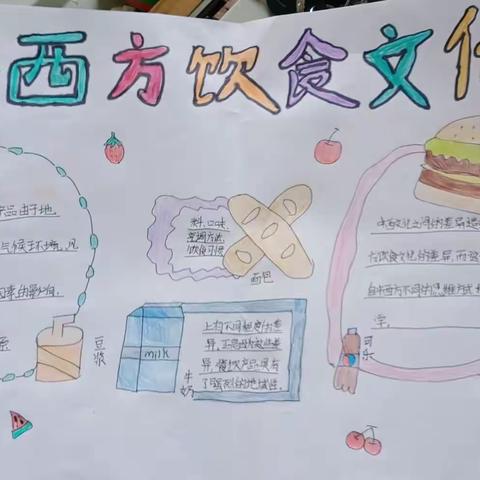 西方饮食文
品由于地
气候环境、风
素的影响.
豆浆
料、口味、
烹调方法、
饮食习惯
面包
milk
牛奶
上的不同程度的差
异, 正是因为这些差
异, 餐饮产品具有
了强烈的地域性.
中西文化之间的差异造
方饮食文化的差异, 而这
自中西方不同的思维方式
学.
可乐